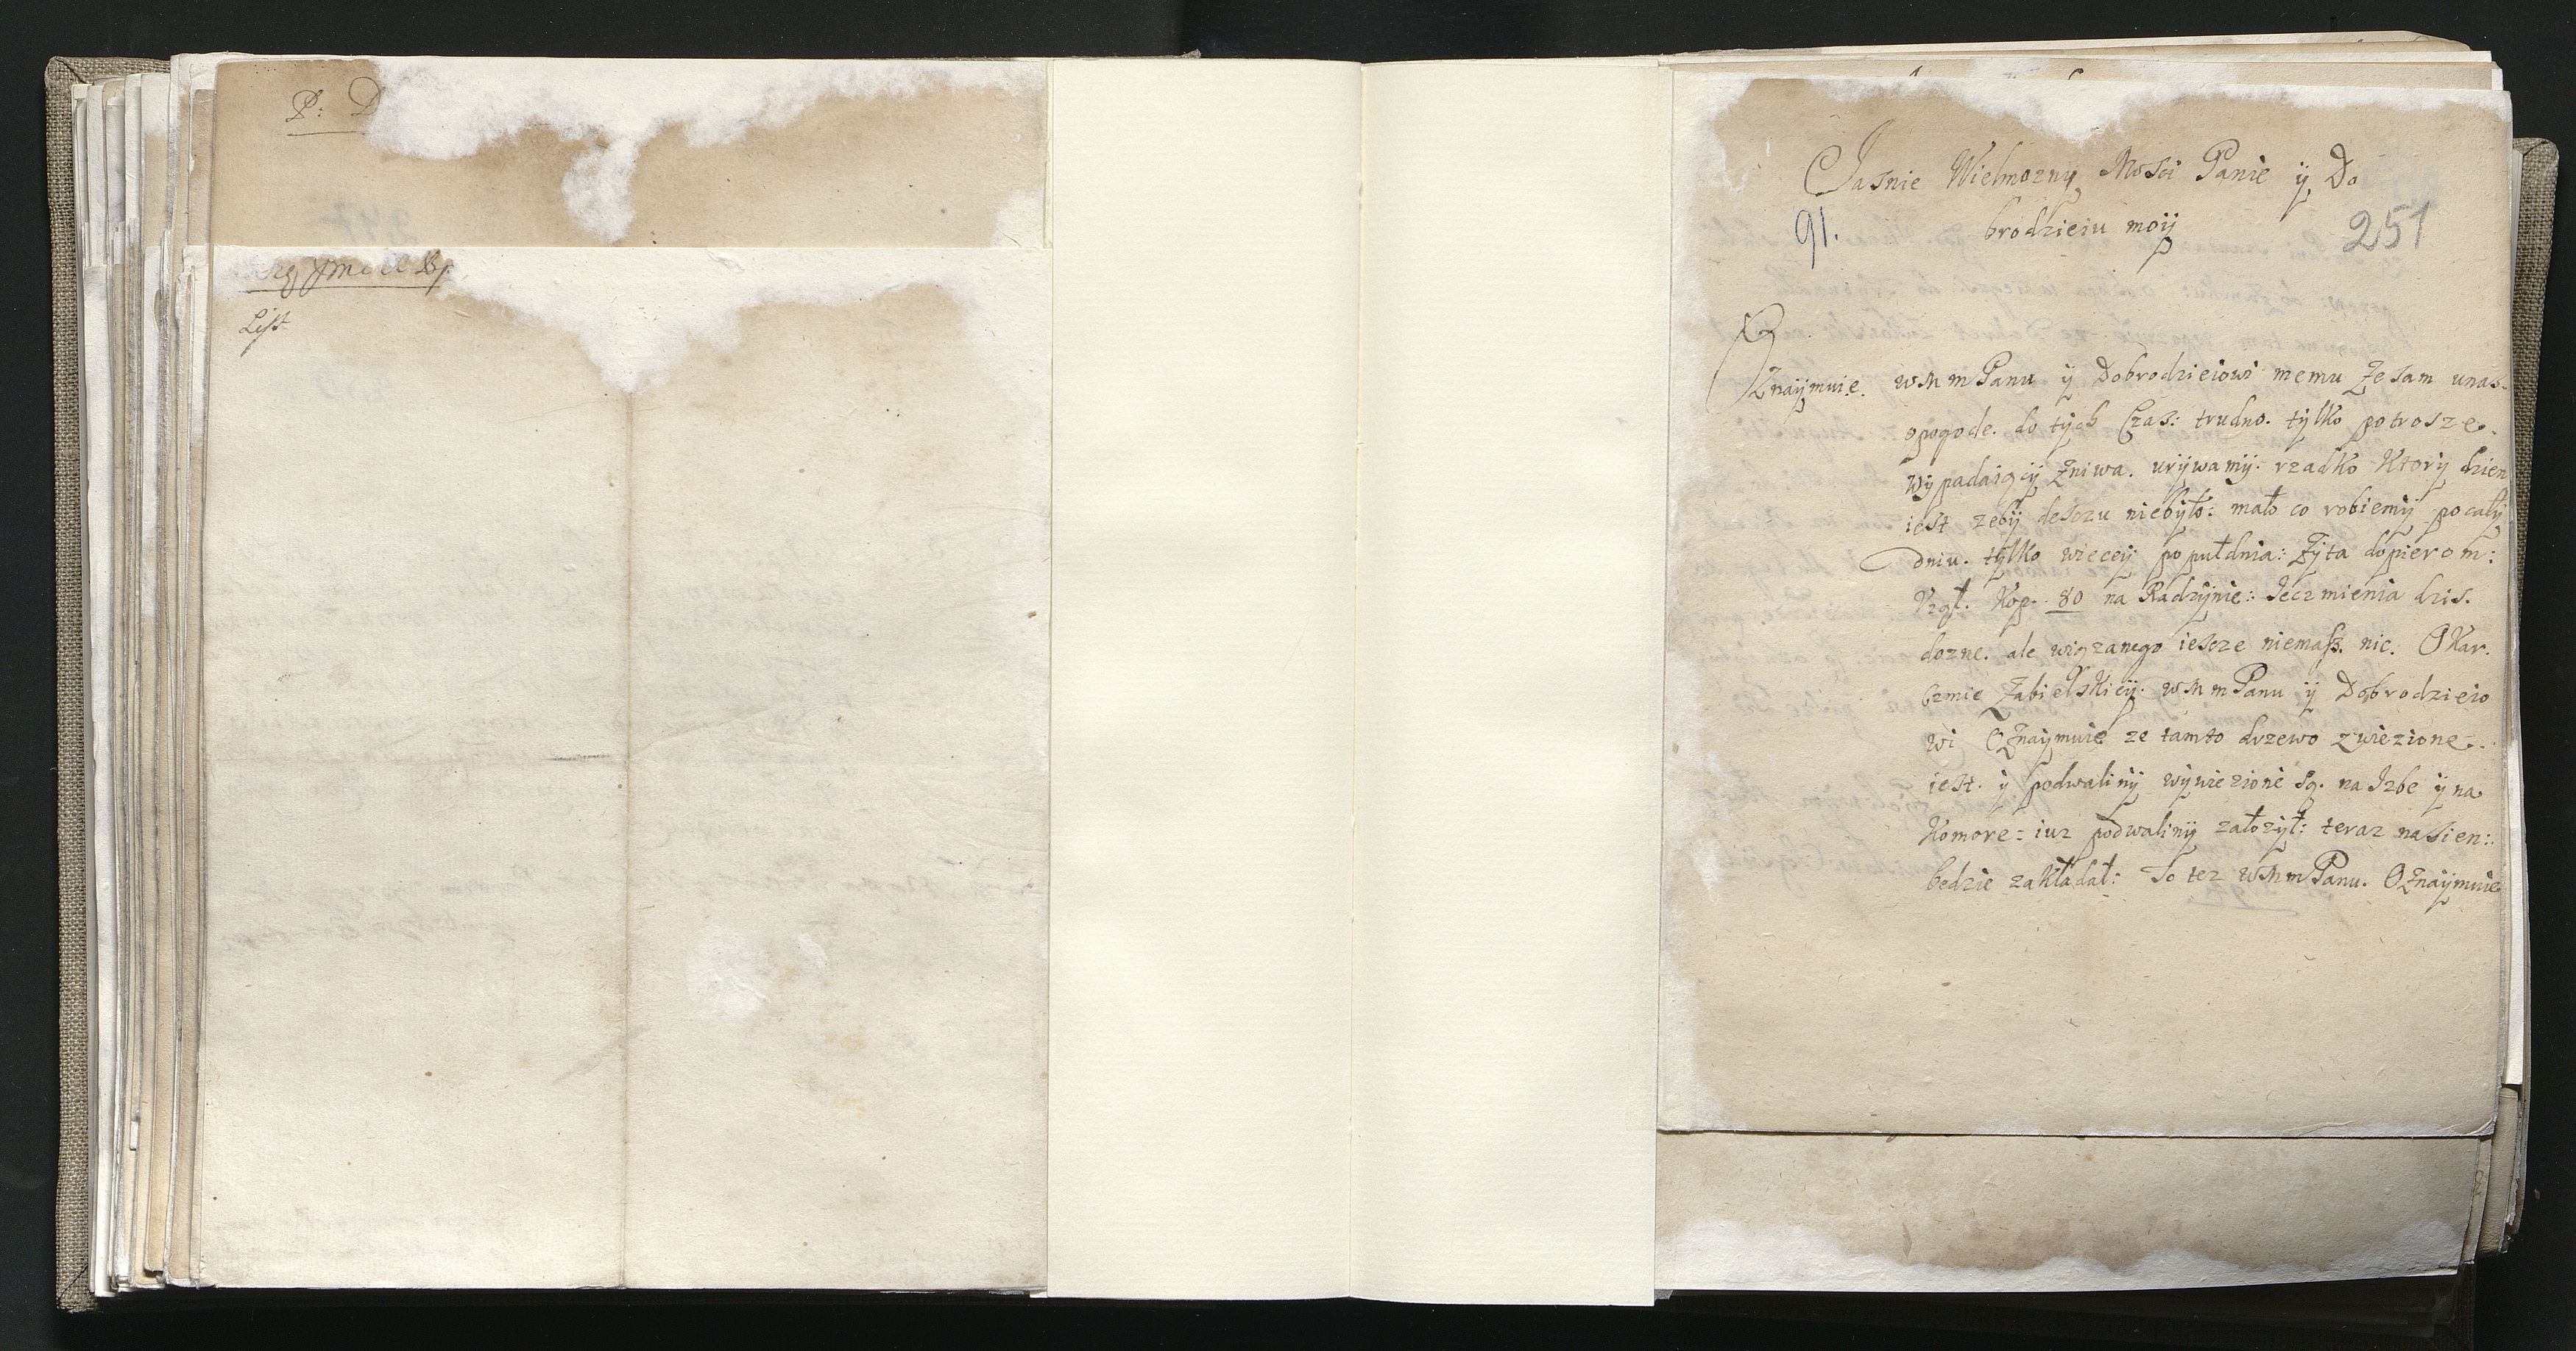 P: D
List
Jasnie Wielmozny Mosci Panie ÿ Do
91.
brodzieiu moÿ
251
OZnaÿmuie. wM m Panu ÿ Dobrodzieiowi memu Ze sam unas
opogode. do tÿch Czas: trudno. tÿlko potrosze.
wÿpadaiącÿ Zniwa. urÿwamÿ. rzadko Ktorÿ dzien
iest zebÿ desczu niebÿło: mało co robiemÿ pocałÿ
dniu. tÿlko wiecei popułdnia: Zÿta dopierom:
Kop. 80 na Radzÿnie: Ieczmienia dzis.
dozne. ale wiązanego iescze niemasz. nic. O Kar.
czmie Zabielskieÿ. wM m Panu ÿ Dobrodzieio
wi OZnaÿmuie ze tamto drzewo zwiezione.
iest. ÿ podwalinÿ wÿwiezione są. na Izbe ÿ na
Komore: iuz podwalinÿ załozÿł: teraz na sien:
bedzie zakładał: To tez wM m Panu. OZnaÿmuie